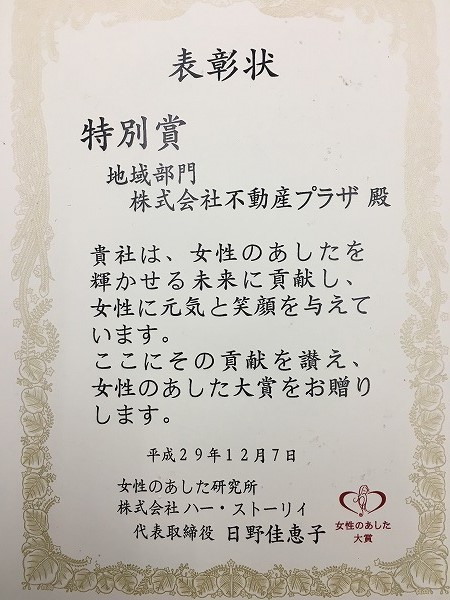 表彰状
特別賞
地域部門
株式会社不動産プラザ 殿
貴社は、女性のあしたを
輝かせる未来に貢献し、
女性に元気と笑顔を与えて
います。
ここにその貢献を讃え、
女性のあした大賞をお贈り
します。
平成29年12月7日
女性のあした研究所
株式会社 ハー・ストーリィ
代表取締役 日野佳恵子
女性のあした
大賞